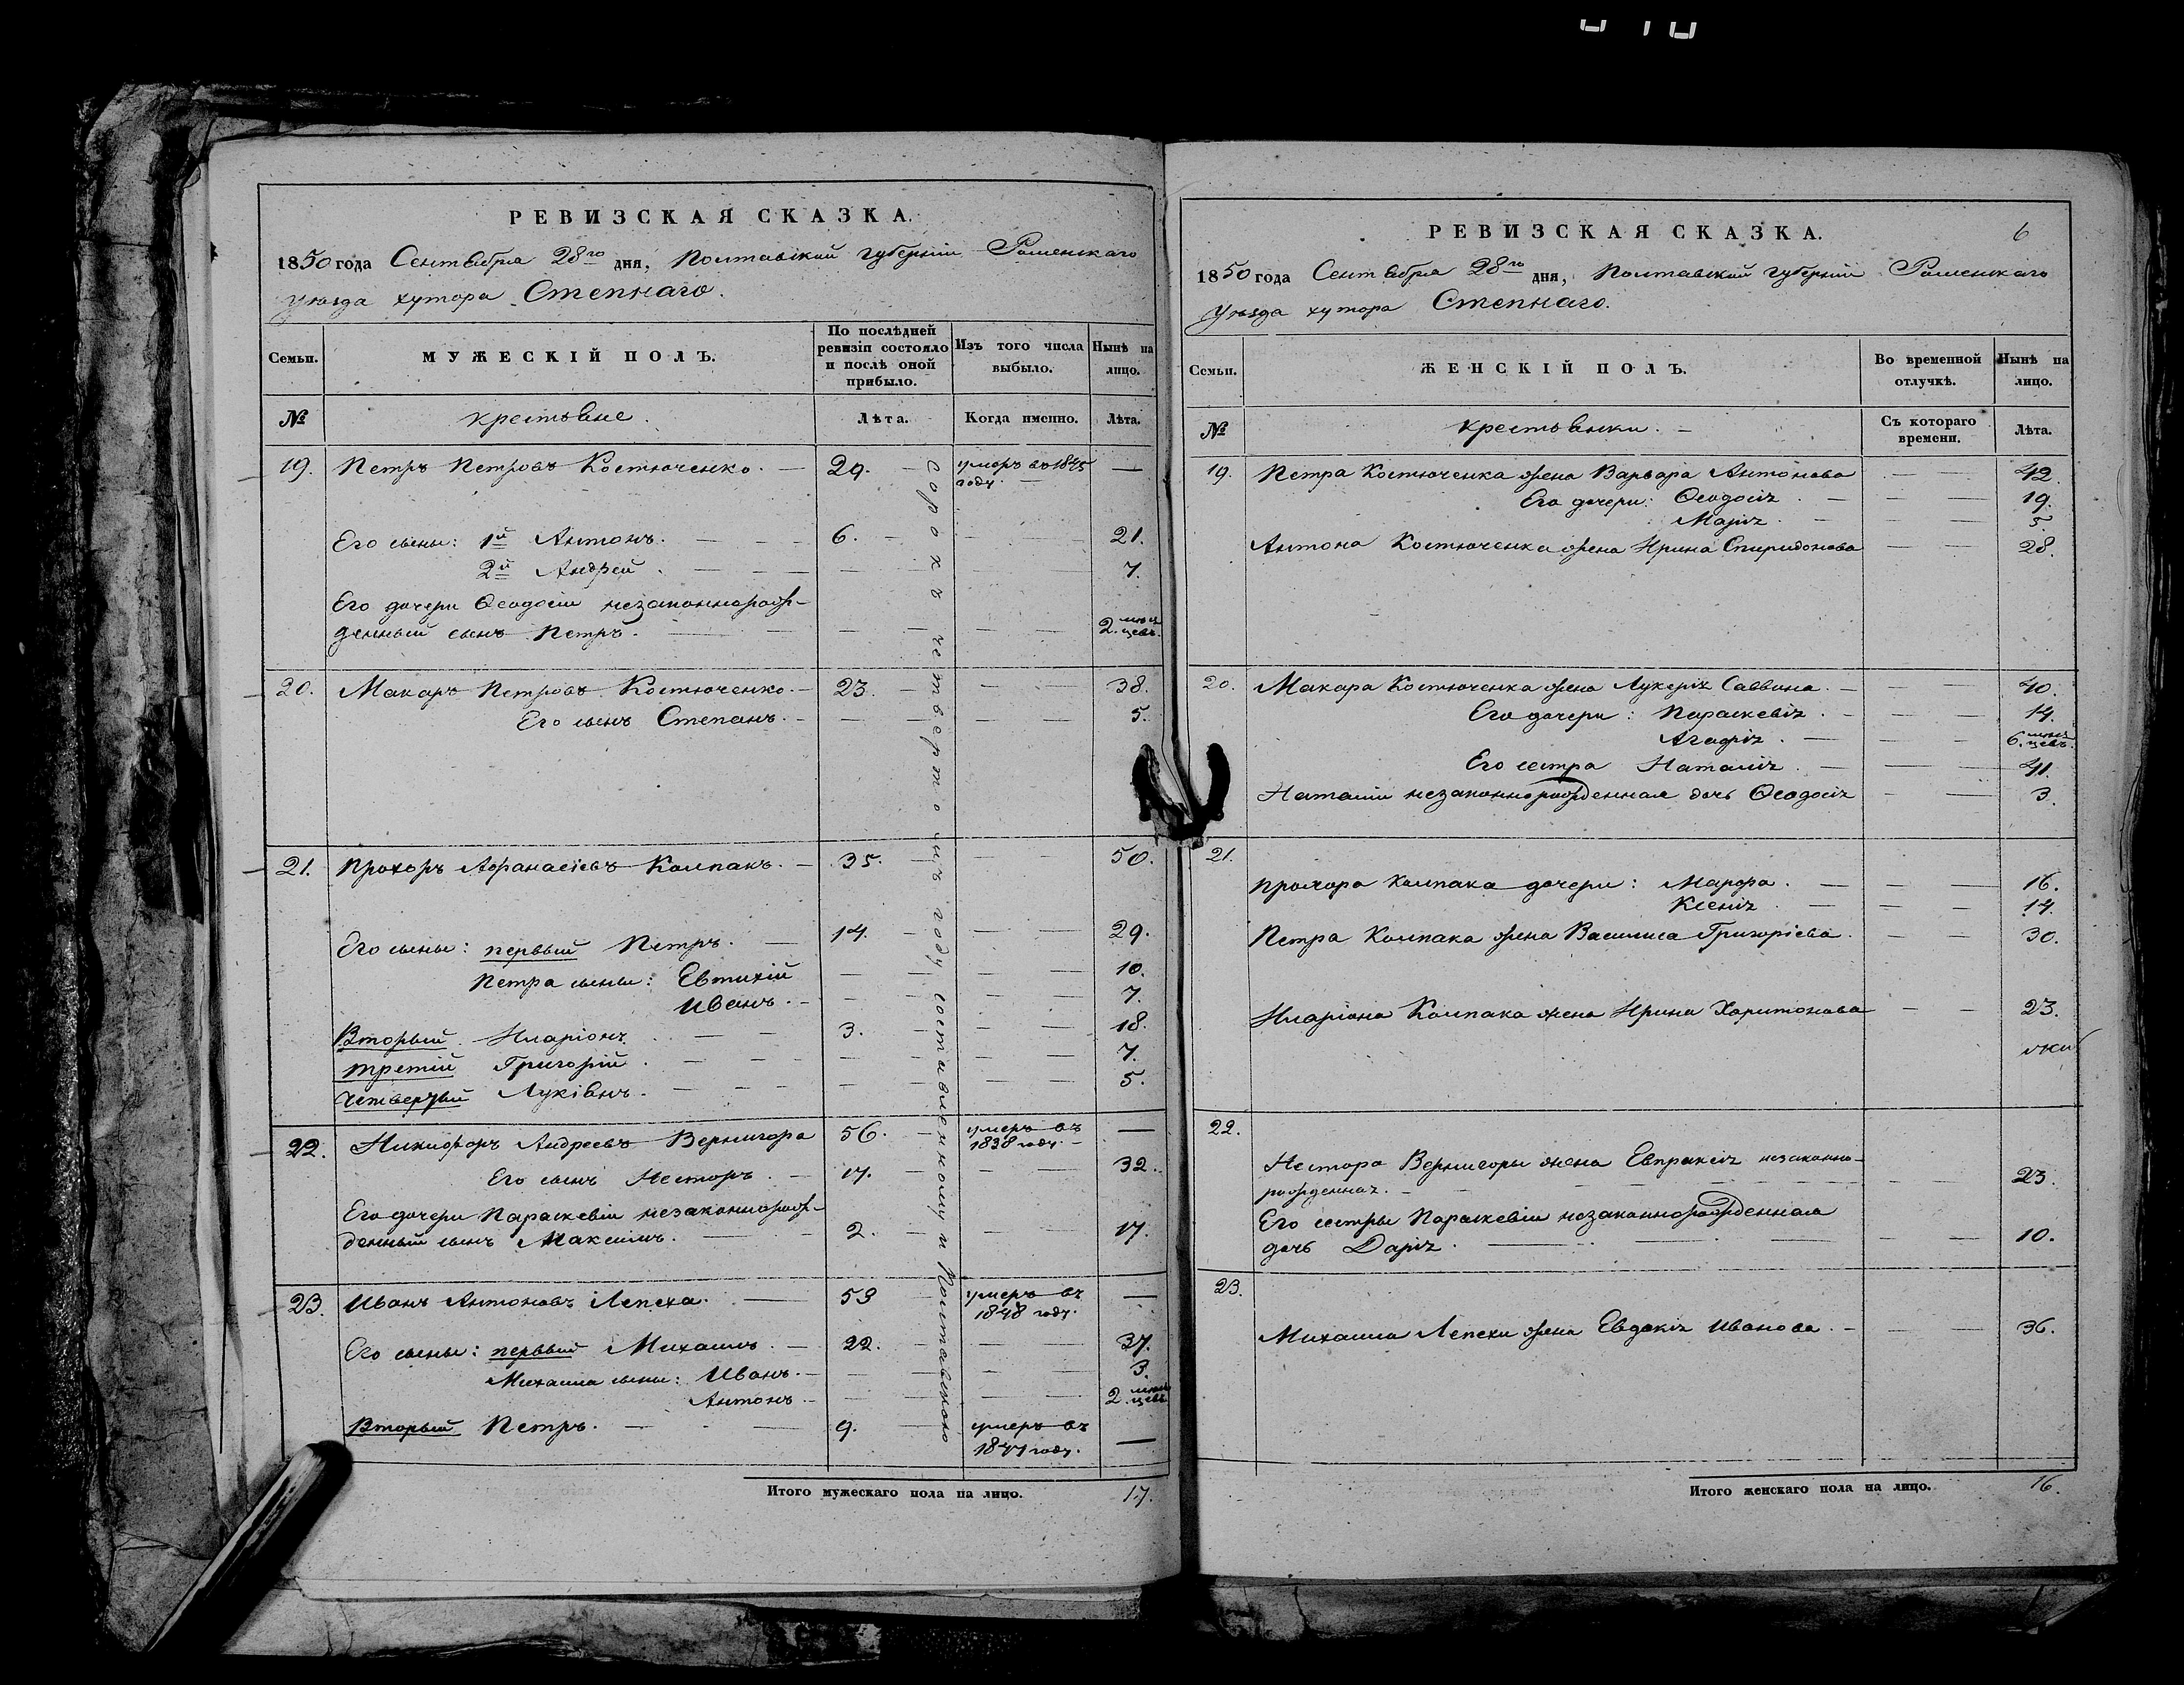 РЕВИЗСКАЯ СКАЗКА.
1850 года Сентября 28го дня, Полтавской губернии Роменскаго
уезда хутора Степнаго.
Семьи.
МУЖЕСКІЙ ПОЛЪ.
По послѣдней ревизіи состояло и послѣ оной прибыло.
Изъ того числа выбыло.
Нынѣ на лицо.
№
крестьяне.
Лѣта.
Когда именно.
Лѣта.
19. Петръ Петровъ Костюченко. — 29. — умеръ въ 1845 году. —
Его сыны: 1й Антонъ. — 6. — 21.
2й Андрей. — 7.
Его дочери Ѳеодосіи незаконнорож-
денный сынъ Петръ. — 2. мѣсяцевъ.
20. Макаръ Петровъ Костюченко. — 23. — 38.
Его сынъ Степанъ. — 5.
21. Прохоръ Афанасіевъ Колпакъ. — 35. — 50.
Его сыны: первый Петръ. — 14. — 29.
Петра сыны: Евтихій — 10.
Иванъ. — 7.
Вторый Иларіонъ — 3. — 18.
третій Григорій. — 7.
Четвертый Лукіянъ. — 5.
22. Никифоръ Андреевъ Вернигора 56. — умеръ въ 1838 году. —
Его сынъ Несторъ. — 17. — 32.
Его дочери Параскевіи незаконнорож-
денный сынъ Максимъ. — 2. — 17.
23. Иванъ Антоновъ Лепеха. — 53 — умеръ въ 1848 году. —
Его сыны: первый Михаилъ. — 22. — 37.
Михаила сыны: Иванъ. — 3.
Антонъ. — 2. мѣсяцевъ
Вторый Петръ. — 9. — умеръ въ 1841 году. —
сорокъ четвертомъ году, составленному и Полтавскою
Итого мужескаго пола на лицо. 17.
РЕВИЗСКАЯ СКАЗКА. 6
1850 года Сентября 28го дня, Полтавской губерніи Роменскаго
уезда хутора Степнаго.
Семьи.
ЖЕНСКІЙ ПОЛЪ.
Во временной отлучкѣ.
Нынѣ на лицо.
№
крестьянки. —
Съ котораго времени.
Лѣта.
19. Петра Костюченка жена Варвара Антонова — 42.
Его дочери: Ѳеодосія. — 19.
Марія. — 5.
Антона Костюченка жена Ирина Спиридонова — 28.
20. Макара Костюченка жена Лукерія Саввина. — 40.
Его дочери: Параскевія. — 14.
Агафія. — 6. мѣсяцевъ.
Его сестра Наталія. — 41.
Наталіи незаконнорожденная дочь Ѳеодосія — 3.
21.
Прохора Колпака дочери: Марфа. — 16.
Ксенія — 14.
Петра Колпака жена Василиса Григоріева. — 30.
Иларіона Колпака жена Ирина Харитонова — 23.
22.
Нестора Вернигоры жена Евпраксія незаконно-
рожденная. — 23.
Его сестры Параскевіи незаконнорожденная
дочь Дарія. — 10.
23.
Михаила Лепехи жена Евдокія Иванова. — 36.
Итого женскаго пола на лицо. 16.